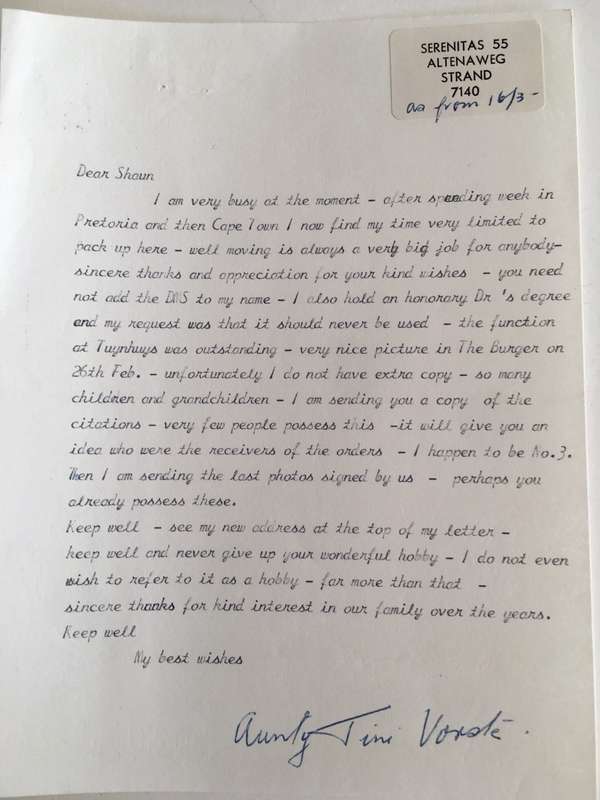 SERENITAS 55
ALTENAWEG
STRAND
7140
as from 16/3 -
Dear Shaun
I am very busy at the moment - after spending week in
Pretoria and then Cape Town I now find my time very limited to
pack up here - well moving is always a very big job for anybody-
sincere thanks and appreciation for your kind wishes - you need
not add the DMS to my name - I also hold an honorary Dr 's degree
and my request was that it should never be used - the function
at Tuynhuys was outstanding - very nice picture in The Burger on
26th Feb. - unfortunately I do not have extra copy - so many
children and grandchildren - I am sending you a copy of the
citations - very few people possess this -it will give you an
idea who were the receivers of the orders - I happen to be No.3.
Then I am sending the last photos signed by us - perhaps you
already possess these.
Keep well - see my new address at the top of my letter -
keep well and never give up your wonderful hobby - I do not even
wish to refer to it as a hobby - far more than that -
sincere thanks for kind interest in our family over the years.
Keep well
My best wishes
Aunty Tini Vorster.